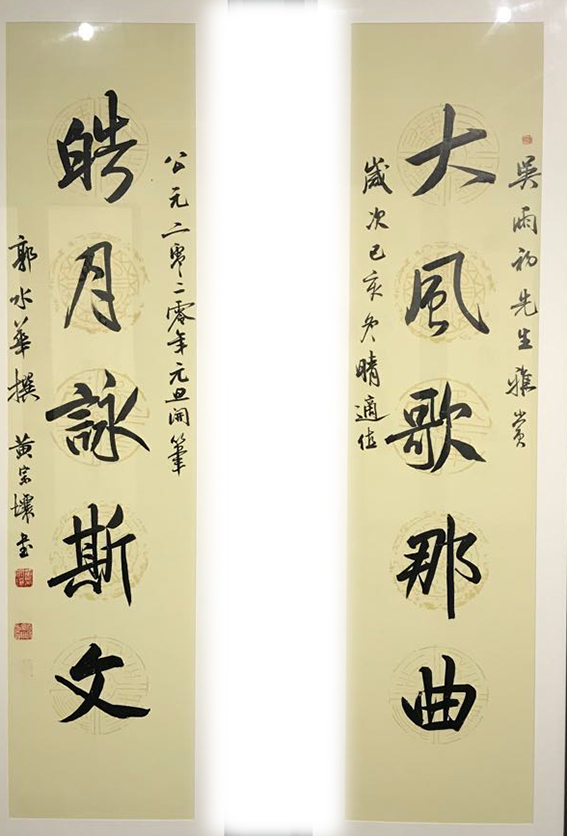 吳雨初先生雅賞
大風歌那曲
歲次己亥冬晴適值
公元二零二零年元旦開筆
皓月詠斯文
郭水華撰 黃宗壤書